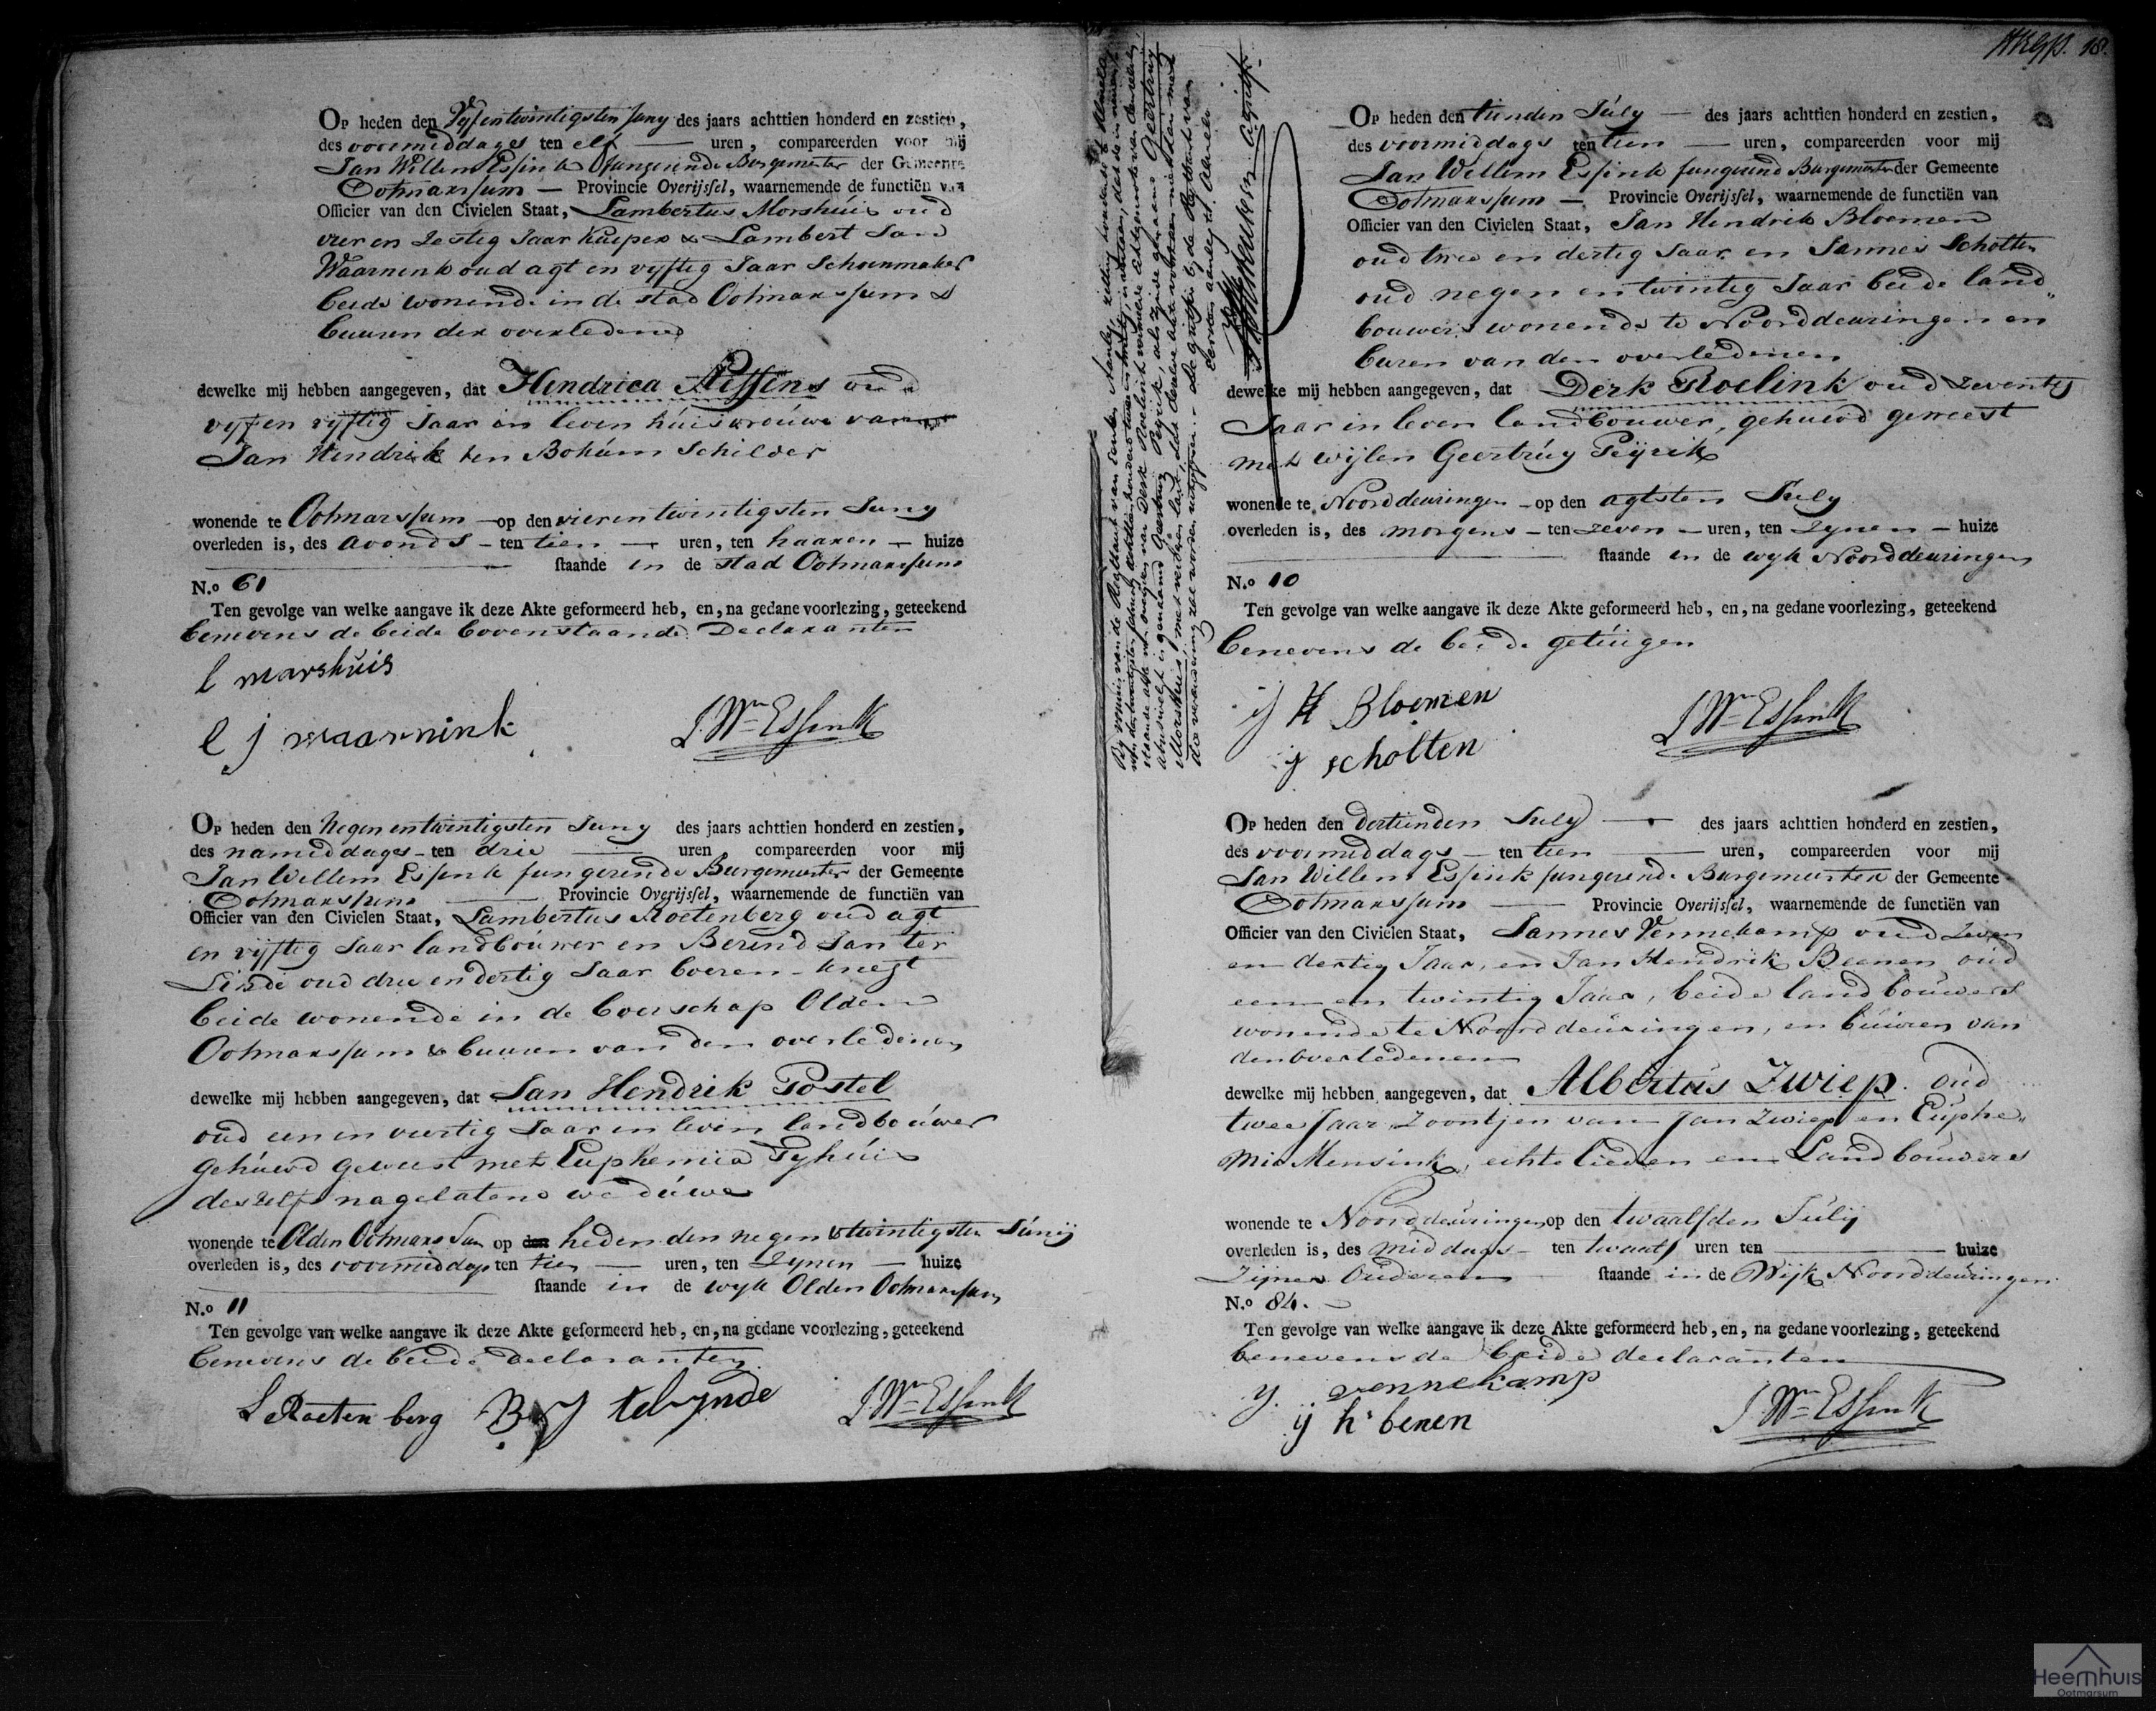 Op heden den Vyfentwintigsten Juny des jaars achttien honderd en zestien,
des voormiddages ten elf uren, compareerden voor mij
Jan Willem Essink fungerende Burgemeester der Gemeente
Ootmarssum Provincie Overijssel, waarnemende de functiën van
Officier van den Civielen Staat, Lambertus Morshuis oud
vier en Zestig Jaar Kuiper & Lambert Jan
Waarnink oud agt en vyftig Jaar Schoenmaker
beide wonende in de stad Ootmarssum &
buuren der overledene
dewelke mij hebben aangegeven, dat Hendrica oud
vyf en vyftig Jaar in leven huisvrouwe van
Jan Hendrik ten Bohúm Schilder
wonende te Ootmarssum op den vierentwintigsten Juny
overleden is, des avonds ten tien uren, ten haaren huize
staande in de stad Ootmarssum
N.o 61
Ten gevolge van welke aangave ik deze Akte geformeerd heb, en, na gedane voorlezing, geteekend
benevens de beide bovenstaande Declaranten
l marshuis
l j waarnink
J Wm Essink
Op heden den Negen entwintigsten Juny des jaars achttien honderd en zestien,
des namiddages ten drie uren compareerden voor mij
Jan Willem Essink fungerende Burgemeester der Gemeente
Ootmarssum Provincie Overijssel, waarnemende de functiën van
Officier van den Civielen Staat, Lambertus Roetenberg oud agt
en vijftig Jaar landbouwer en Berend Jan ter
Linde oud drie en dertig Jaar boeren-knegt
beide wonende in de boerschap Olden
Ootmarssum & buuren van den overledenen
dewelke mij hebben aangegeven, dat Jan Hendrik Postel
oud een en veertig Jaar in leven landbouwer
gehuwd geweest met Euphemia Tyhuis
deszelfs nagelatene weduwe
wonende te Olden Ootmarssum op den heden den negen & twintigsten Junij
overleden is, des voormiddags ten tien uren, ten Zynen huize
staande in de wyk Olden Ootmarssum
N.o 11
Ten gevolge van welke aangave ik deze Akte geformeerd heb, en, na gedane voorlezing, geteekend
benevens de beide declaranten
L Roetenberg B J telynde
J Wm Essink
18.
Op heden den tienden July des jaars achttien honderd en zestien,
des voormiddags ten tien uren, compareerden voor mij
Jan Willem Essink fungerend Burgemeester der Gemeente
Ootmarssum Provincie Overijssel, waarnemende de functiën van
Officier van den Civielen Staat, Jan Hendrik Bloemen
oud twee en dertig Jaar en Jannes Scholten
oud negen en twintig Jaar beide land„
bouwers wonende te Noorddeuringen en
buren van den overledenen
dewelke mij hebben aangegeven, dat Derk Roelink oud zeventig
Jaar in leven landbouwer, gehuwd geweest
met wijlen Geertruy Peijrik
wonende te Noorddeuringen op den agtsten July
overleden is, des morgens ten zeven uren, ten Zynen huize
staande in de wyk Noorddeuringen
N.o 10
Ten gevolge van welke aangave ik deze Akte geformeerd heb, en, na gedane voorlezing, geteekend
benevens de beide getuigen
ij H Bloemen
ij scholten
J Wm Essink
Op heden den dertienden July des jaars achttien honderd en zestien,
des voormiddags ten tien uren, compareerden voor mij
Jan Willem Essink fungerende Burgemeester der Gemeente
Ootmarssum Provincie Overijssel, waarnemende de functiën van
Officier van den Civielen Staat, Jannes Vennekamp oud Zeven
en dertig Jaar, en Jan Hendrik Beenen oud
een en twintig Jaar, beide landbouwers
wonende te Noorddeuringen, en buuren van
den overledenen
dewelke mij hebben aangegeven, dat Albertus Zwiep. oud
twee Jaar, Zoontjen van Jan Zwiep en Euphe„
mia Mensink, echtelieden en Landbouwers
wonende te Noorddeuringen op den twaalfden Julij
overleden is, des middags ten twaalf uren ten huize
Zijner Ouderen staande in de Wijk Noorddeuringen
N.o 84.
Ten gevolge van welke aangave ik deze Akte geformeerd heb, en, na gedane voorlezing, geteekend
benevens de beide declaranten
y. vennekamp
ij h benen
J Wm Essink
Heemhuis
Ootmarsum